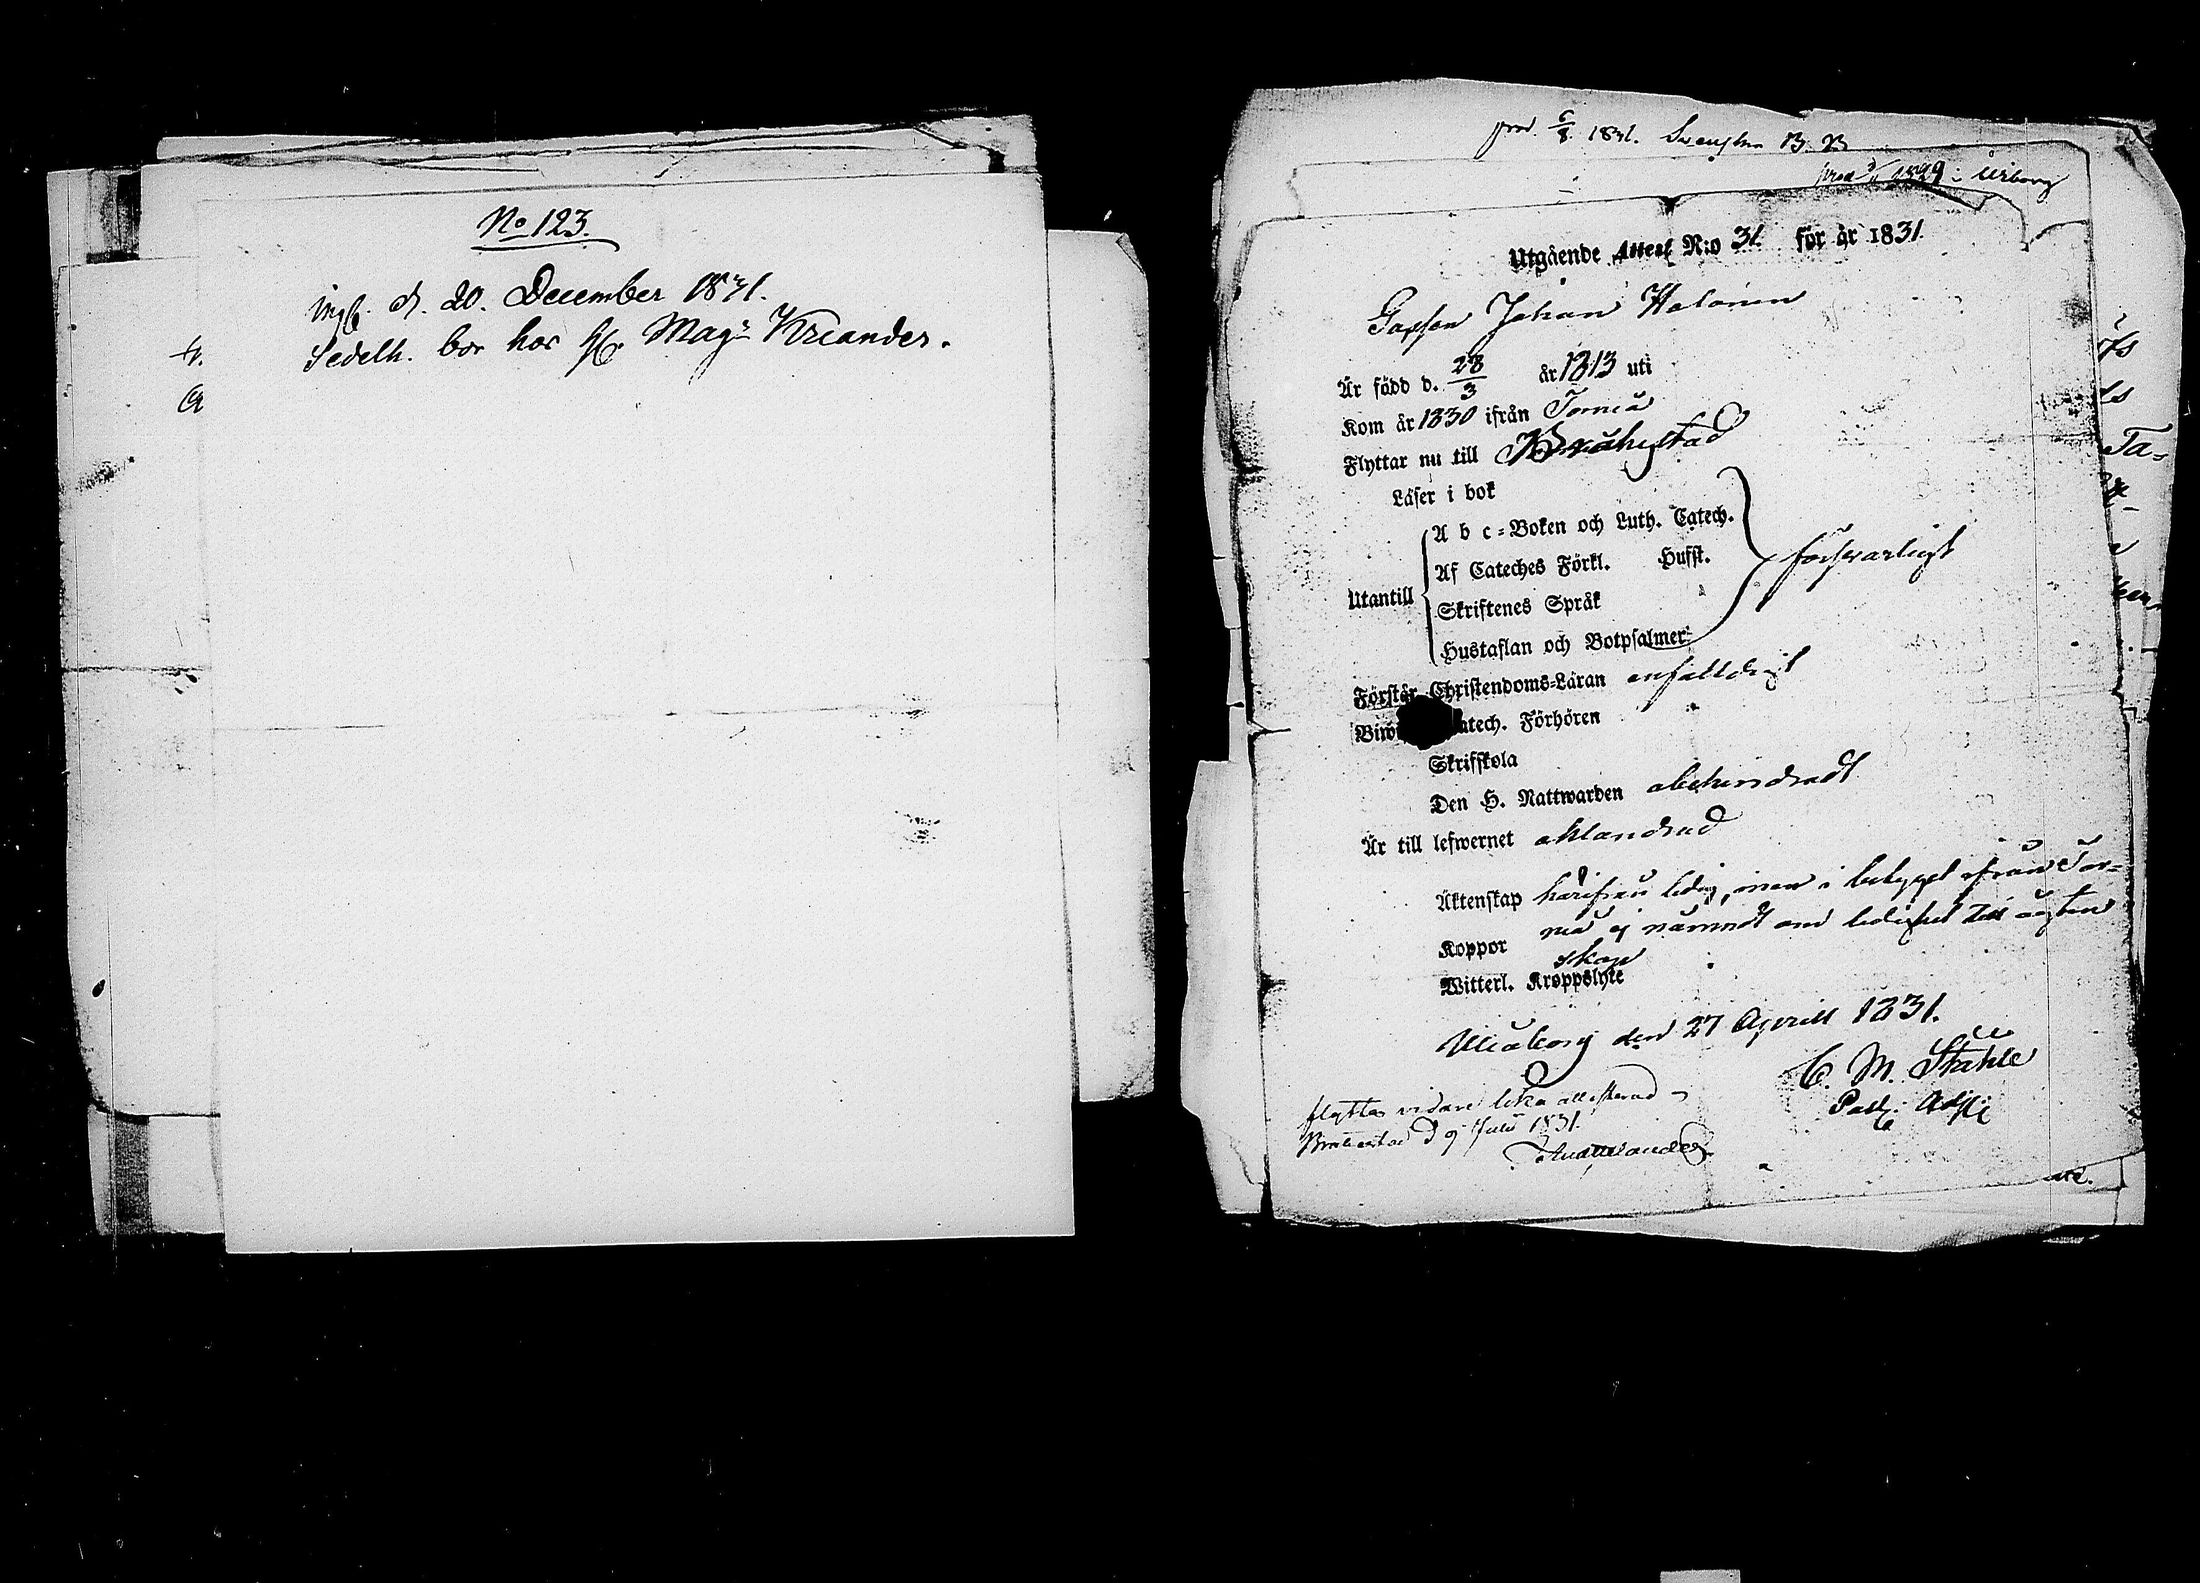 No 123.
ingf. d. 20. December 1831.
Sedelh. bor hos H. Magr Kreander.
prod. 6/8. 1831. Svengben B. B
prod 1829 i Uleåborg
Utgående Attest N:o 31. för år 1831.
Johan Halonen
Är född d. 28/3 år 1813 uti
Kom år 1830 ifrån Torneå
Flyttar nu till Brahestad
Läser i bok
A b c-Boken och Luth. Catech.
Af Cateches Förkl. Husst.
försvarligt
Utantill
Skriftenes Språk
Hustaflan och Botpsalmer
Förstår Christendoms-Läran enfalldigt
Biw atech. Förhören
Skrifskola
Den H. Nattwarden obehindradt
Är till lefwernet oklandrad
Äktenskap härifrån ledig, men i betyget ifrån Tor-
neå ej nämndt om ledighet till ägten
Koppor skap
Witterl. Kroppslyte
Uleåborg den 27 Aprill 1831.
C. M. Ståhle
Past. Adj.
flyttar vidare lika attesterad
Brahestad d 9 Julii 1831.